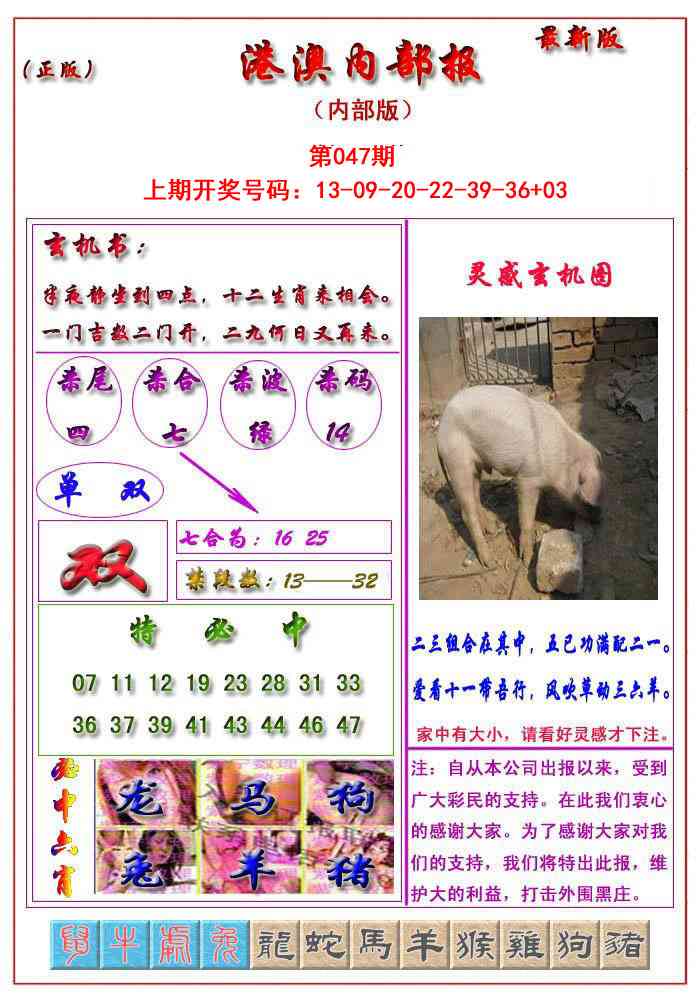 （正版）
港澳内部报
最新版
（内部版）
第047期
上期开奖号码：13-09-20-22-39-36+03
玄机书：
半夜静坐到四点，十二生肖来相会。
一门吉数二门开，二九何日又再来。
杀尾 杀合 杀波 杀码
四 七 绿 14
单 双
双
七合为：16 25
禁段数：13——32
特 必 中
07 11 12 19 23 28 31 33
36 37 39 41 43 44 46 47
必中六肖
龙 马 狗
兔 羊 猪
灵感玄机图
二三组合在其中，五已功满配二一。
爱看十一带吾行，风吹草动三六羊。
家中有大小，请看好灵感才下注。
注：自从本公司出报以来，受到
广大彩民的支持。在此我们衷心
的感谢大家。为了感谢大家对我
们的支持，我们将特出此报，维
护大的利益，打击外围黑庄。
鼠 牛 虎 兔 龍 蛇 馬 羊 猴 雞 狗 豬